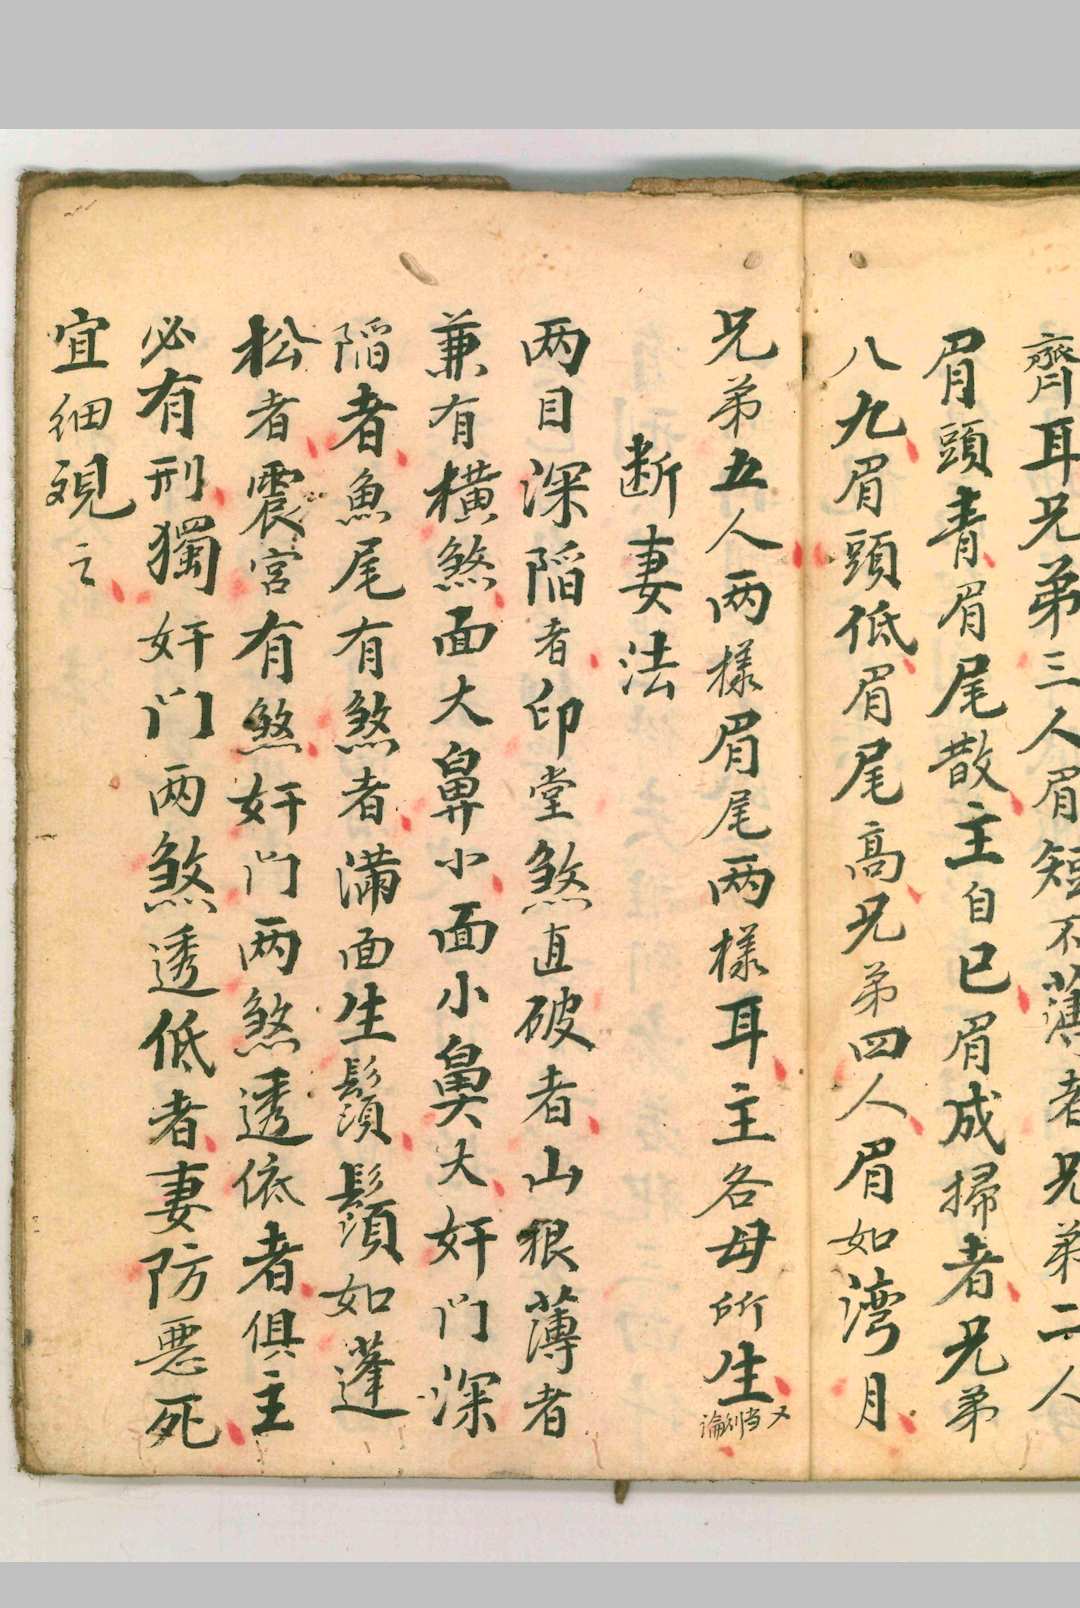 齊耳兄弟三人眉短不薄者兄弟二人
眉頭青眉尾散主自己眉成掃者兄弟
八九眉頭低眉尾高兄弟四人眉如湾月
兄弟五人两樣眉尾两樣耳主各母所生
又当别論
断妻法
两目深陷者印堂煞直破者山根薄者
兼有橫煞面大鼻小面小鼻大奸门深
陷者魚尾有煞者满面生鬚鬚如蓬
松者震宮有煞奸门两煞透低者俱主
必有刑獨奸门两煞透低者妻防悪死
宜细視之